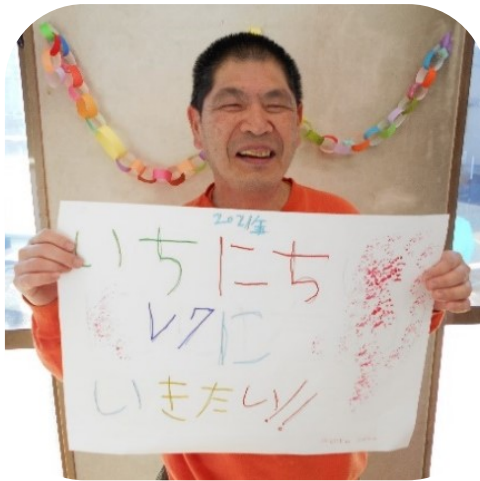 2021年
いちにち
レクに
いきたい!!